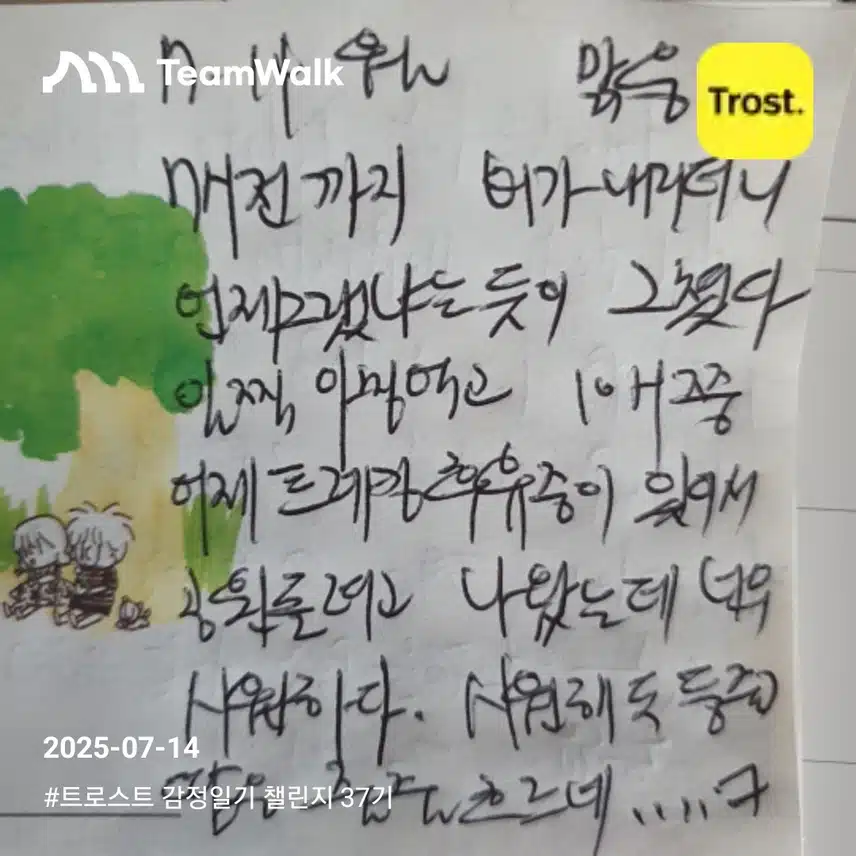 TeamWalk
맑음
Trost.
새벽까지 비가 내리더니
언제그랬냐는듯이 그쳤다
일찍 아침먹고
어제 트레킹후유증이 있어서
나왔는데 너무
시원하다. 시원해도 등줄
2025-07-14
#트로스트 감정일기 챌린지 37기
흐르네